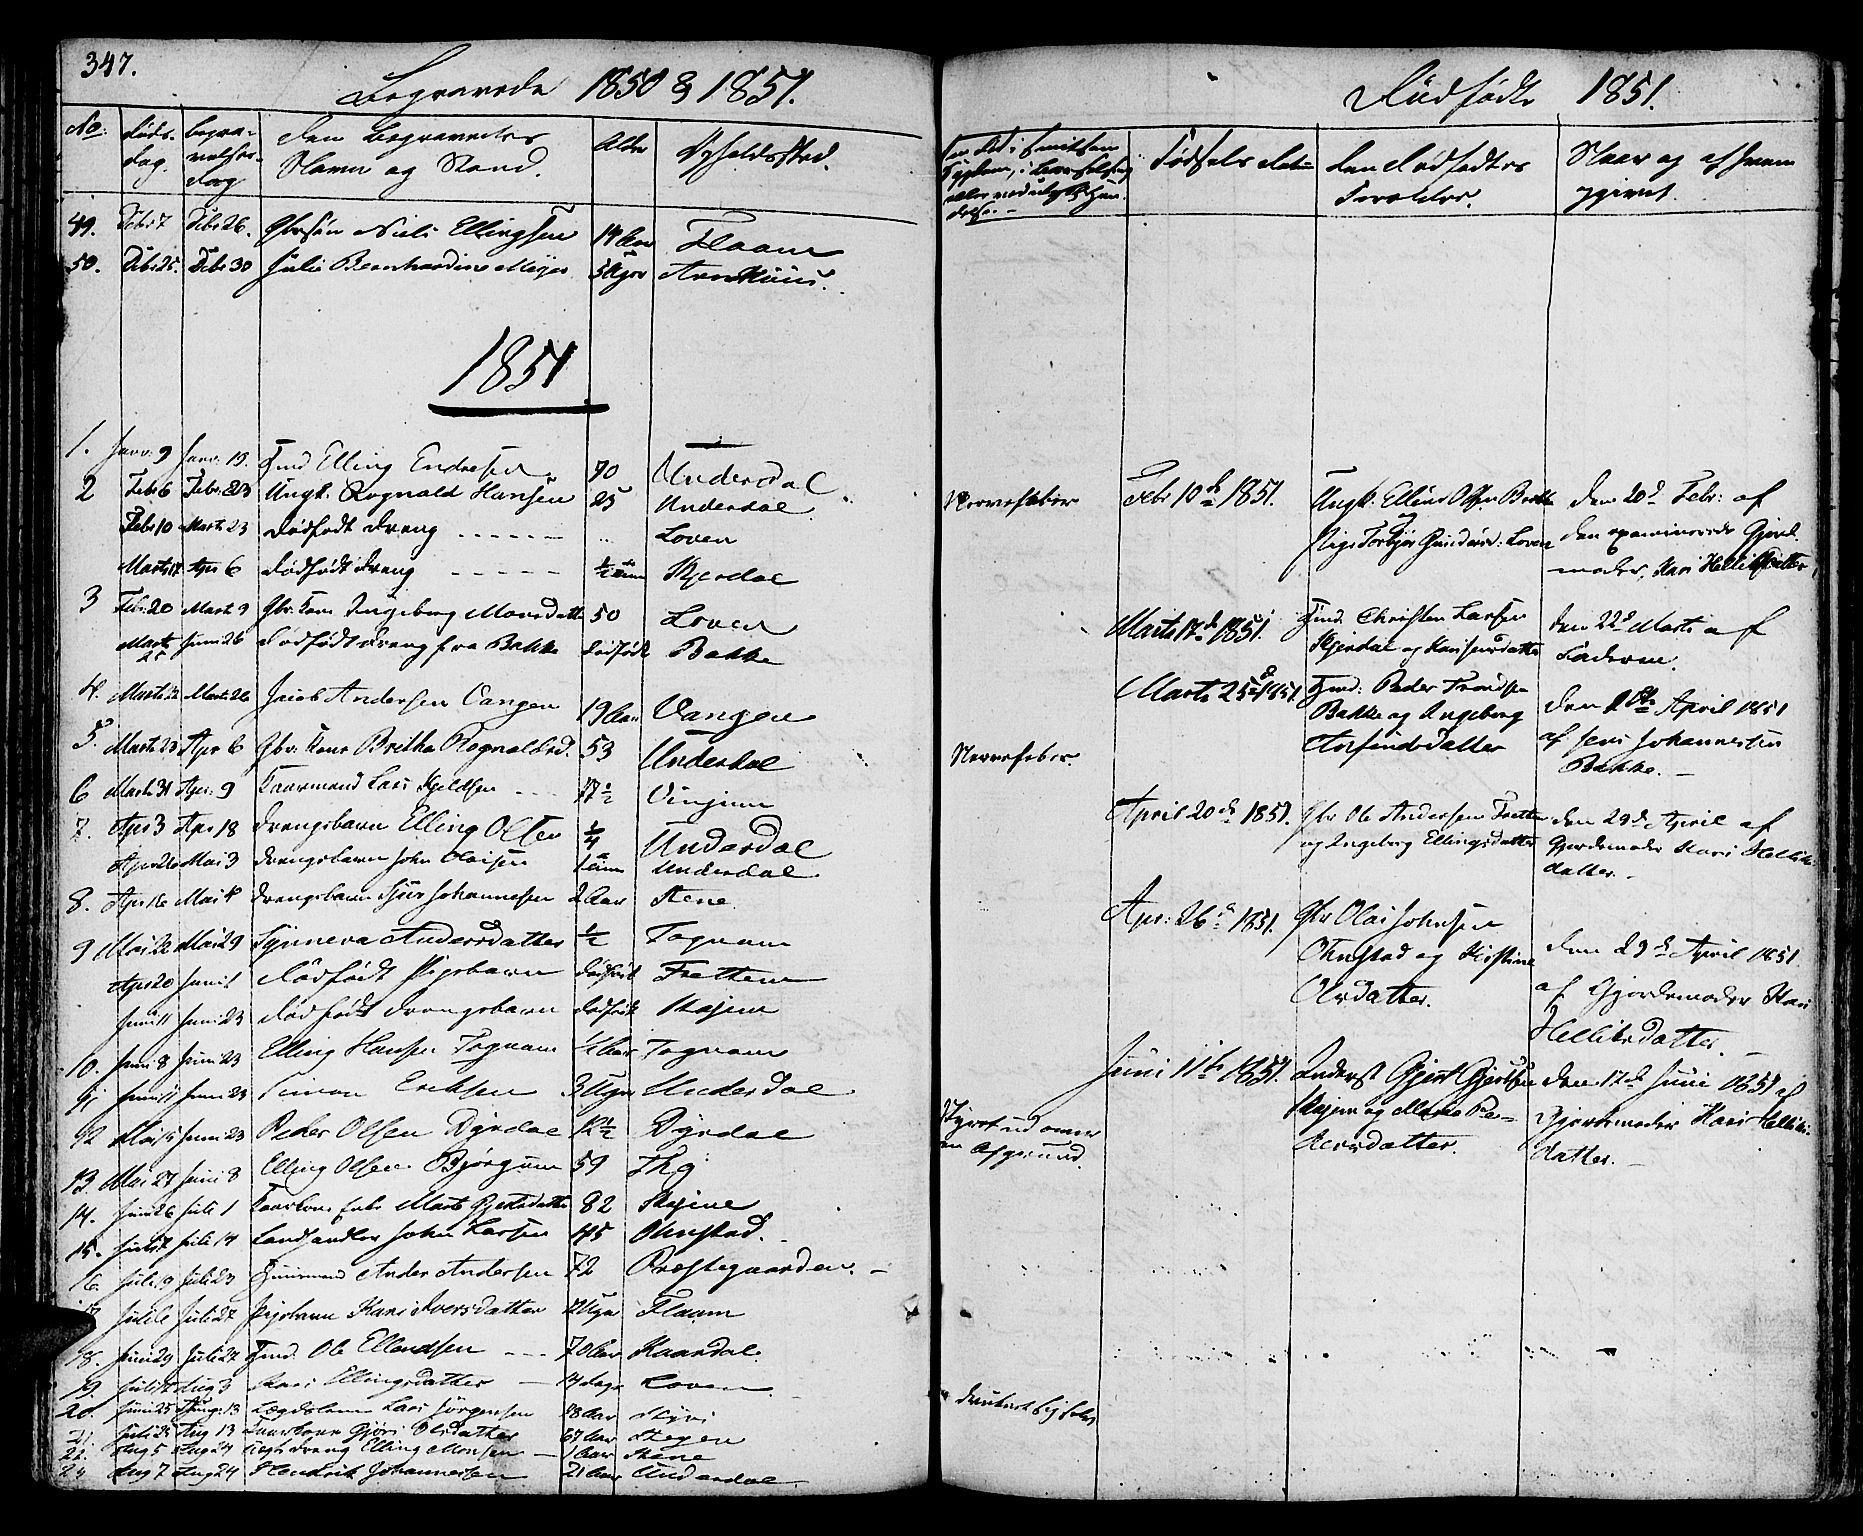 347.
Begravede 1850 & 1851.
No. Døds-dag. Begravelses-dag Den Begravedes Navn og Stand. Alder Opholdssted.
49. Debr 7 Debr 26. Gbrsøn Niels Ellingsen 19 Aar Flaam
50. Debr 25. Debr 30 Julie Bernhardine Meijer 5 Uger
1851
1. Janr: 9 Janr: 19. Fmd Elling Endresen 70 Underdal
2 Febr 6 Febr: 23 Ungk. Rognald Hansen 25 Underdal.
Febr 10 Marts 23 Dødfødt Dreng - - - - - - Loven
Marts 17 Apr 6 Dødfødt Dreng - - - - - Skjerdal
3 Feb: 20 Mart. 9 Gbr. Kone Ingeborg Monsdatter 50 Loven
Marts 25 Juni 26 Dødfødt Dreng fra Bakke Dødfødt Bakke
4. Marts 22 Marts 26 Jacob Andersen Vangen 19 Aar Vangen
5. Marts 23 Apr 6 Gbr: Kone Britha Rognaldsd. 53 Underdal
6 Marts 31 Apr: 9 Kaarmand Lars Kjeldsen - - - 77 1/2 Vinjum
7. Apr 3 Apr 18 Drengebarn Elling Olsen 1/4 Underdal
Apr 26 Mai 3 Drengebarn John Olaisen 1 Time Underdal
8. Apr 16 Mai 4 Drengebarn Sjur Johannesen 2 Aar Stene.
9 Mai 20 Mai 29 Synneva Andersdatter 1/2 Fognam
Apr 20 Juni 1 Dødfødt Pigebarn Dødfødt Fretten
Juni 11 Juni 23 Dødfødt Drengebarn Dødfødt Skejen
10. Juni 8 Juni 23 Elling Hansen Fognam 1/2 Aar Fognam
11 Juni 11 Juni 23 Simon Eriksen 3 Uger Underdal
12 Mai 15 Juni 23 Peder Olsen Dyrdal 12 1/2 Dyrdal
13. Mai 27 Juni 8 Elling Olsen Bjørgum 59
14. Juni 26 Juli 1 Kaarkone Enke Marte Gjertsdatter 82
15. Juli 7 Juli 14 Landhandler John Larsen 45 Ohnstad.
16 Juli 19 Juli 23 Huusmand Anders Andersen 72 Præstegaarden. -
17 Juli 6 Juli 27 Pigebarn Kari Iversdatter 7 Uger Flaam
18. Juni 29 Juli 27 Fmd. Ole Ellendsen - - - 70 Aar Kaardal.
19. Juli 17 Aug 3 Kari Ellingsdatter - 14 Dage Loven.
20. Juni 25 Aug: 13 Lægdslem Lars Jørgensen 78 Aar Styvi
21. Juli 25 Aug 13 Kaarkone Gjøri Olsdatter 67 Aar Stegen
22. Aug 5 Aug 24 Dreng Elling Monsen - 1 Aar Stene
23 Aug 7 Aug 24 Hendrik Johannessen 21 Aar Underdal.
Dødfødte 1851.
Fødsels Datum Den Dødfødtes Forældre. Naar og af hvem givet.
Nervefeber
Febr 10de 1851. Ungk. Elling Bakke og Pige Torbjør Gundersd: Loven
den 20d Febr: af den examinerede Gjordmoder, Kari Helliksdatter
Marts 17de 1851. Fmd. Christen Larsen Skjerdal og Kari
den 22d Marts af Faderen.
Marts 25de 1851. Fmd: Peder Trondsen Bakke og Ingeborg Arfindsdatter
den April 1851 af Jens Johannesen Bakke. -
Nervefeber.
April 20de 1851. Gbr Ole Andersen Fretten og Ingeborg Ellingsdatter
den 29de April af Gjordemoder Kari Helliksdatter. -
Apr: 26de 1851. Gbr Olai Johnsen Ohnstad og Kirstine Olsdatter.
den 29de April 1851. af Gjordemoder Kari Helliksdatter. -
Juni 11te 1851. Inderst Gjert Gjertsen Skejen og Marte Pedersdatter.
den 17de Juni 1851 af Gjordemoder Kari Helliksdatter. -
Styrtet ud over en Afgrund.